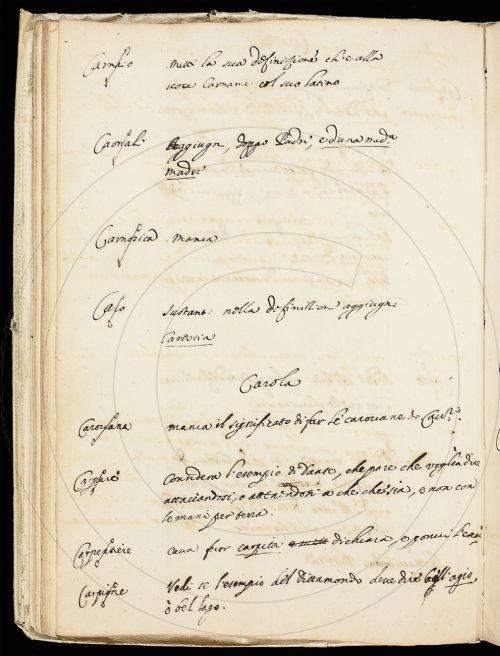 metti la sua definizione ch'e alla
voce Carname col suo latino
Carnal. Aggiugn, doppo Padri, e d'una med.ª
madre
Carnesica manca
Caro Sustant: nella definitione aggiugn:
Carestia
Carola
Carovana manca il significato di far le carovane de Cav.ri
Considera l'esempio di Dante, che pare che voglia dire
attaccandosi, o attenendosi a che che sia, e non con
le mani per terra.
cava fuor carpita e mett dichiara, e ponvi l'
Carpigne Vedi se l'esempio del Dittamondo deve dir
o del lago.